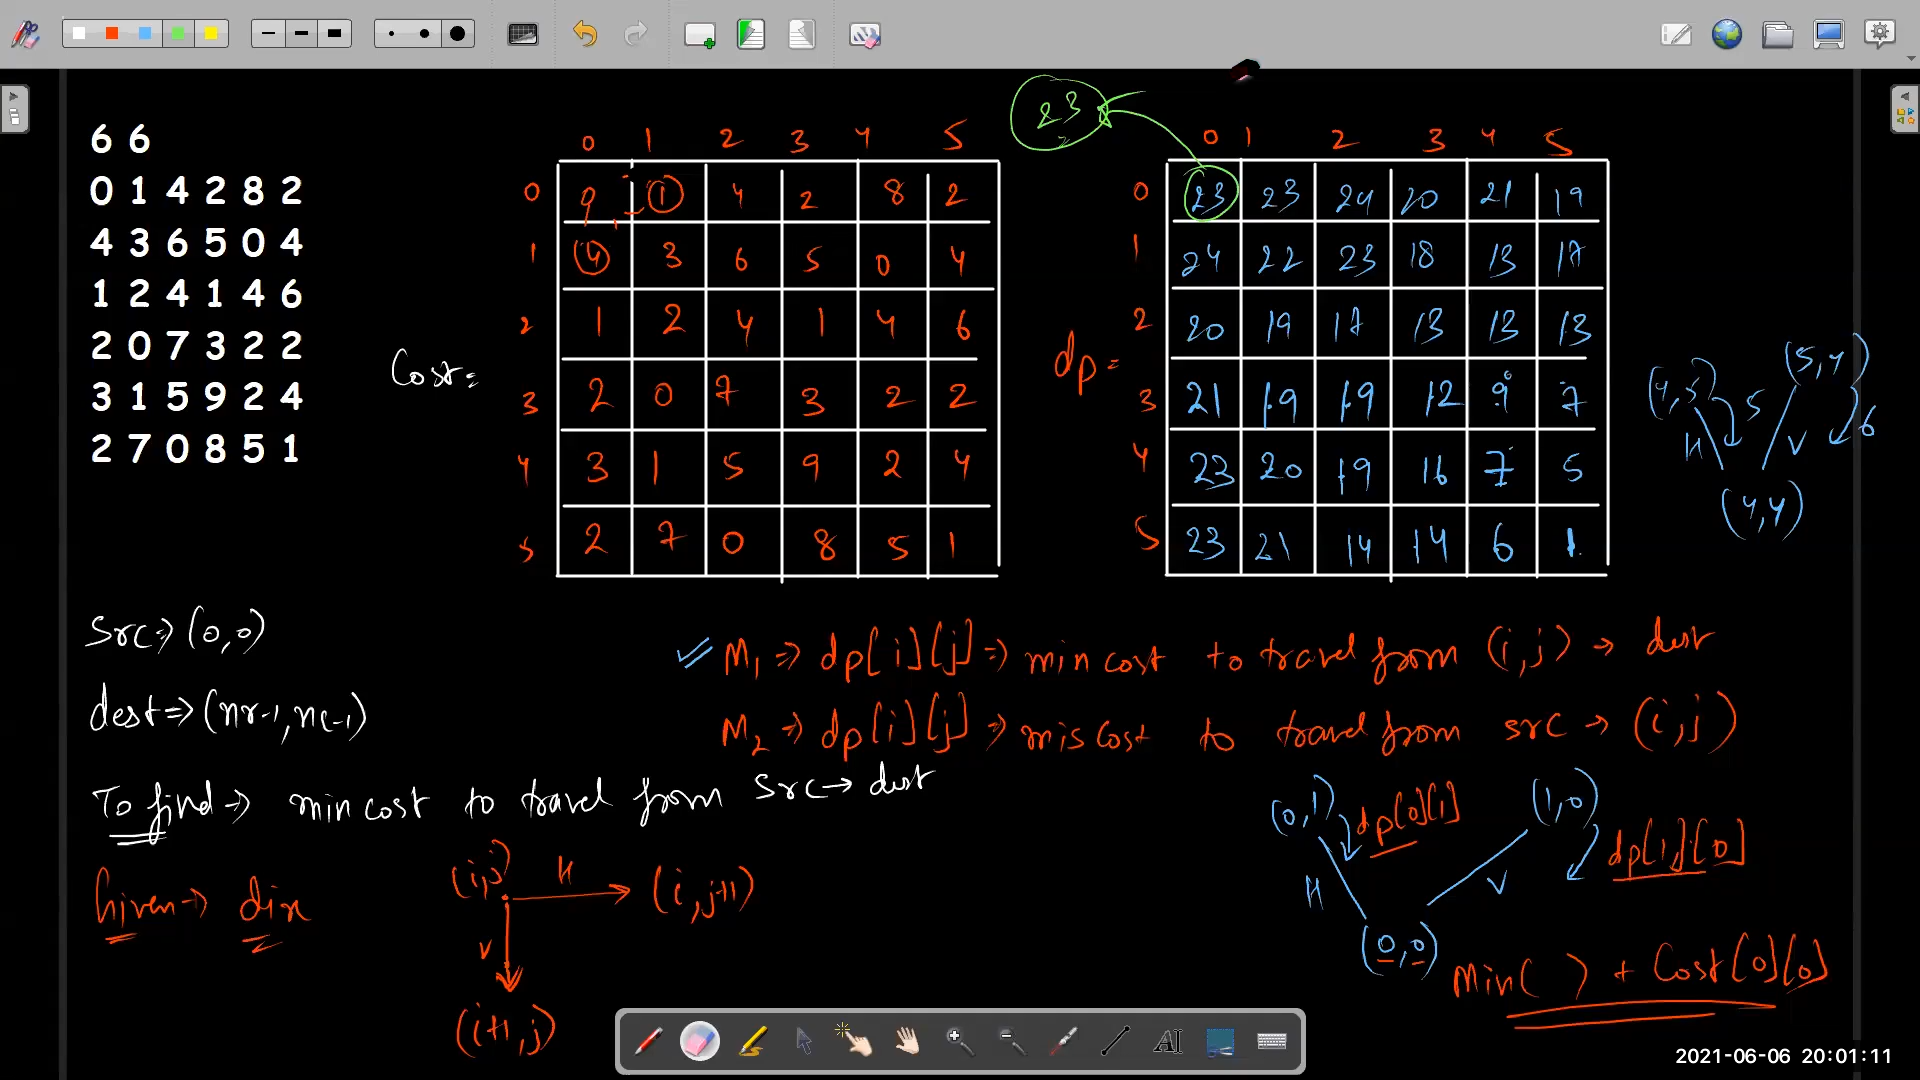 6 6
0 1 4 2 8 2
4 3 6 5 0 4
1 2 4 1 4 6
2 0 7 3 2 2
3 1 5 9 2 4
2 7 0 8 5 1
Cost =
0 1 2 3 4 5
0 0 1 4 2 8 2
1 4 3 6 5 0 4
2 1 2 4 1 4 6
3 2 0 7 3 2 2
4 3 1 5 9 2 4
5 2 7 0 8 5 1
23
dp =
0 1 2 3 4 5
0 23 23 24 20 21 19
1 24 22 23 18 13 17
2 20 19 17 13 13 13
3 21 19 19 12 9 7
4 23 20 19 16 7 5
5 23 21 14 14 6 1
(4,5) 5 (5,4) 6
H V
(4,4)
Src => (0,0)
dest => (nr-1, nc-1)
To find => min cost to travel from src → dest
Given → dir
(i,j) H (i, j+1)
V
(i+1, j)
M1 => dp[i][j] => min cost to travel from (i,j) → dest
M2 => dp[i][j] => mis cost to travel from src → (i,j)
(0,1) dp[0][1] (1,0) dp[1][0]
H V
(0,0)
Min( ) + Cost[0][0]
2021-06-06 20:01:11